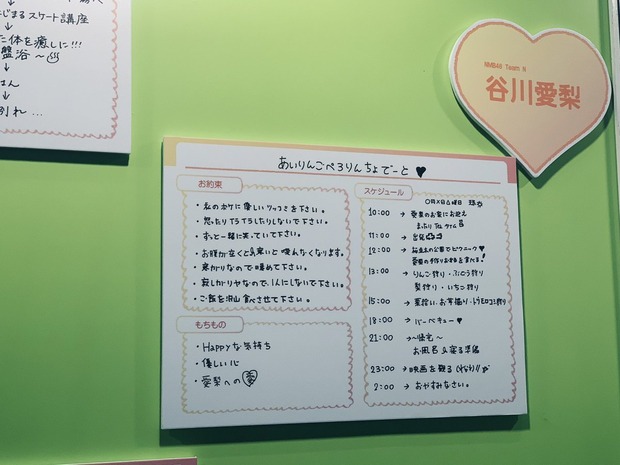 じまるスケート講座
↓
た体を癒しに!!!
盤浴～
↓
はん
↓
別れ...
NMB48 Team N
谷川愛梨
あいりんごぺろりんちょでーと♥
お約束
・私のボケに優しいツッコミを下さい。
・怒ったりイライラしたりしないで下さい。
・ずっと一緒に笑っていて下さい。
・お腹が空くと
・寒がりなので暖めて下さい。
・寂しがりヤなので、1人にしないで下さい。
・ご飯を沢山食べさせて下さい。
もちもの
・Happyな気持ち
・優しい心
・愛梨への愛
スケジュール
〇月×日△曜日
10:00 → 愛梨のお家にお迎え
まったり
11:00 → 出発
12:00 → 公園でピクニック♥
愛梨の手作りお弁当を食べる!
13:00 → りんご狩り・ぶどう狩り
梨狩り・いちご狩り
15:00 → 栗拾い・お芋掘り・トウモロコシ狩り
18:00 → バーベキュー♥
21:00 → ～帰宅～
お風呂&寝る準備
23:00 → 映画を観る
2:00 → おやすみなさい。